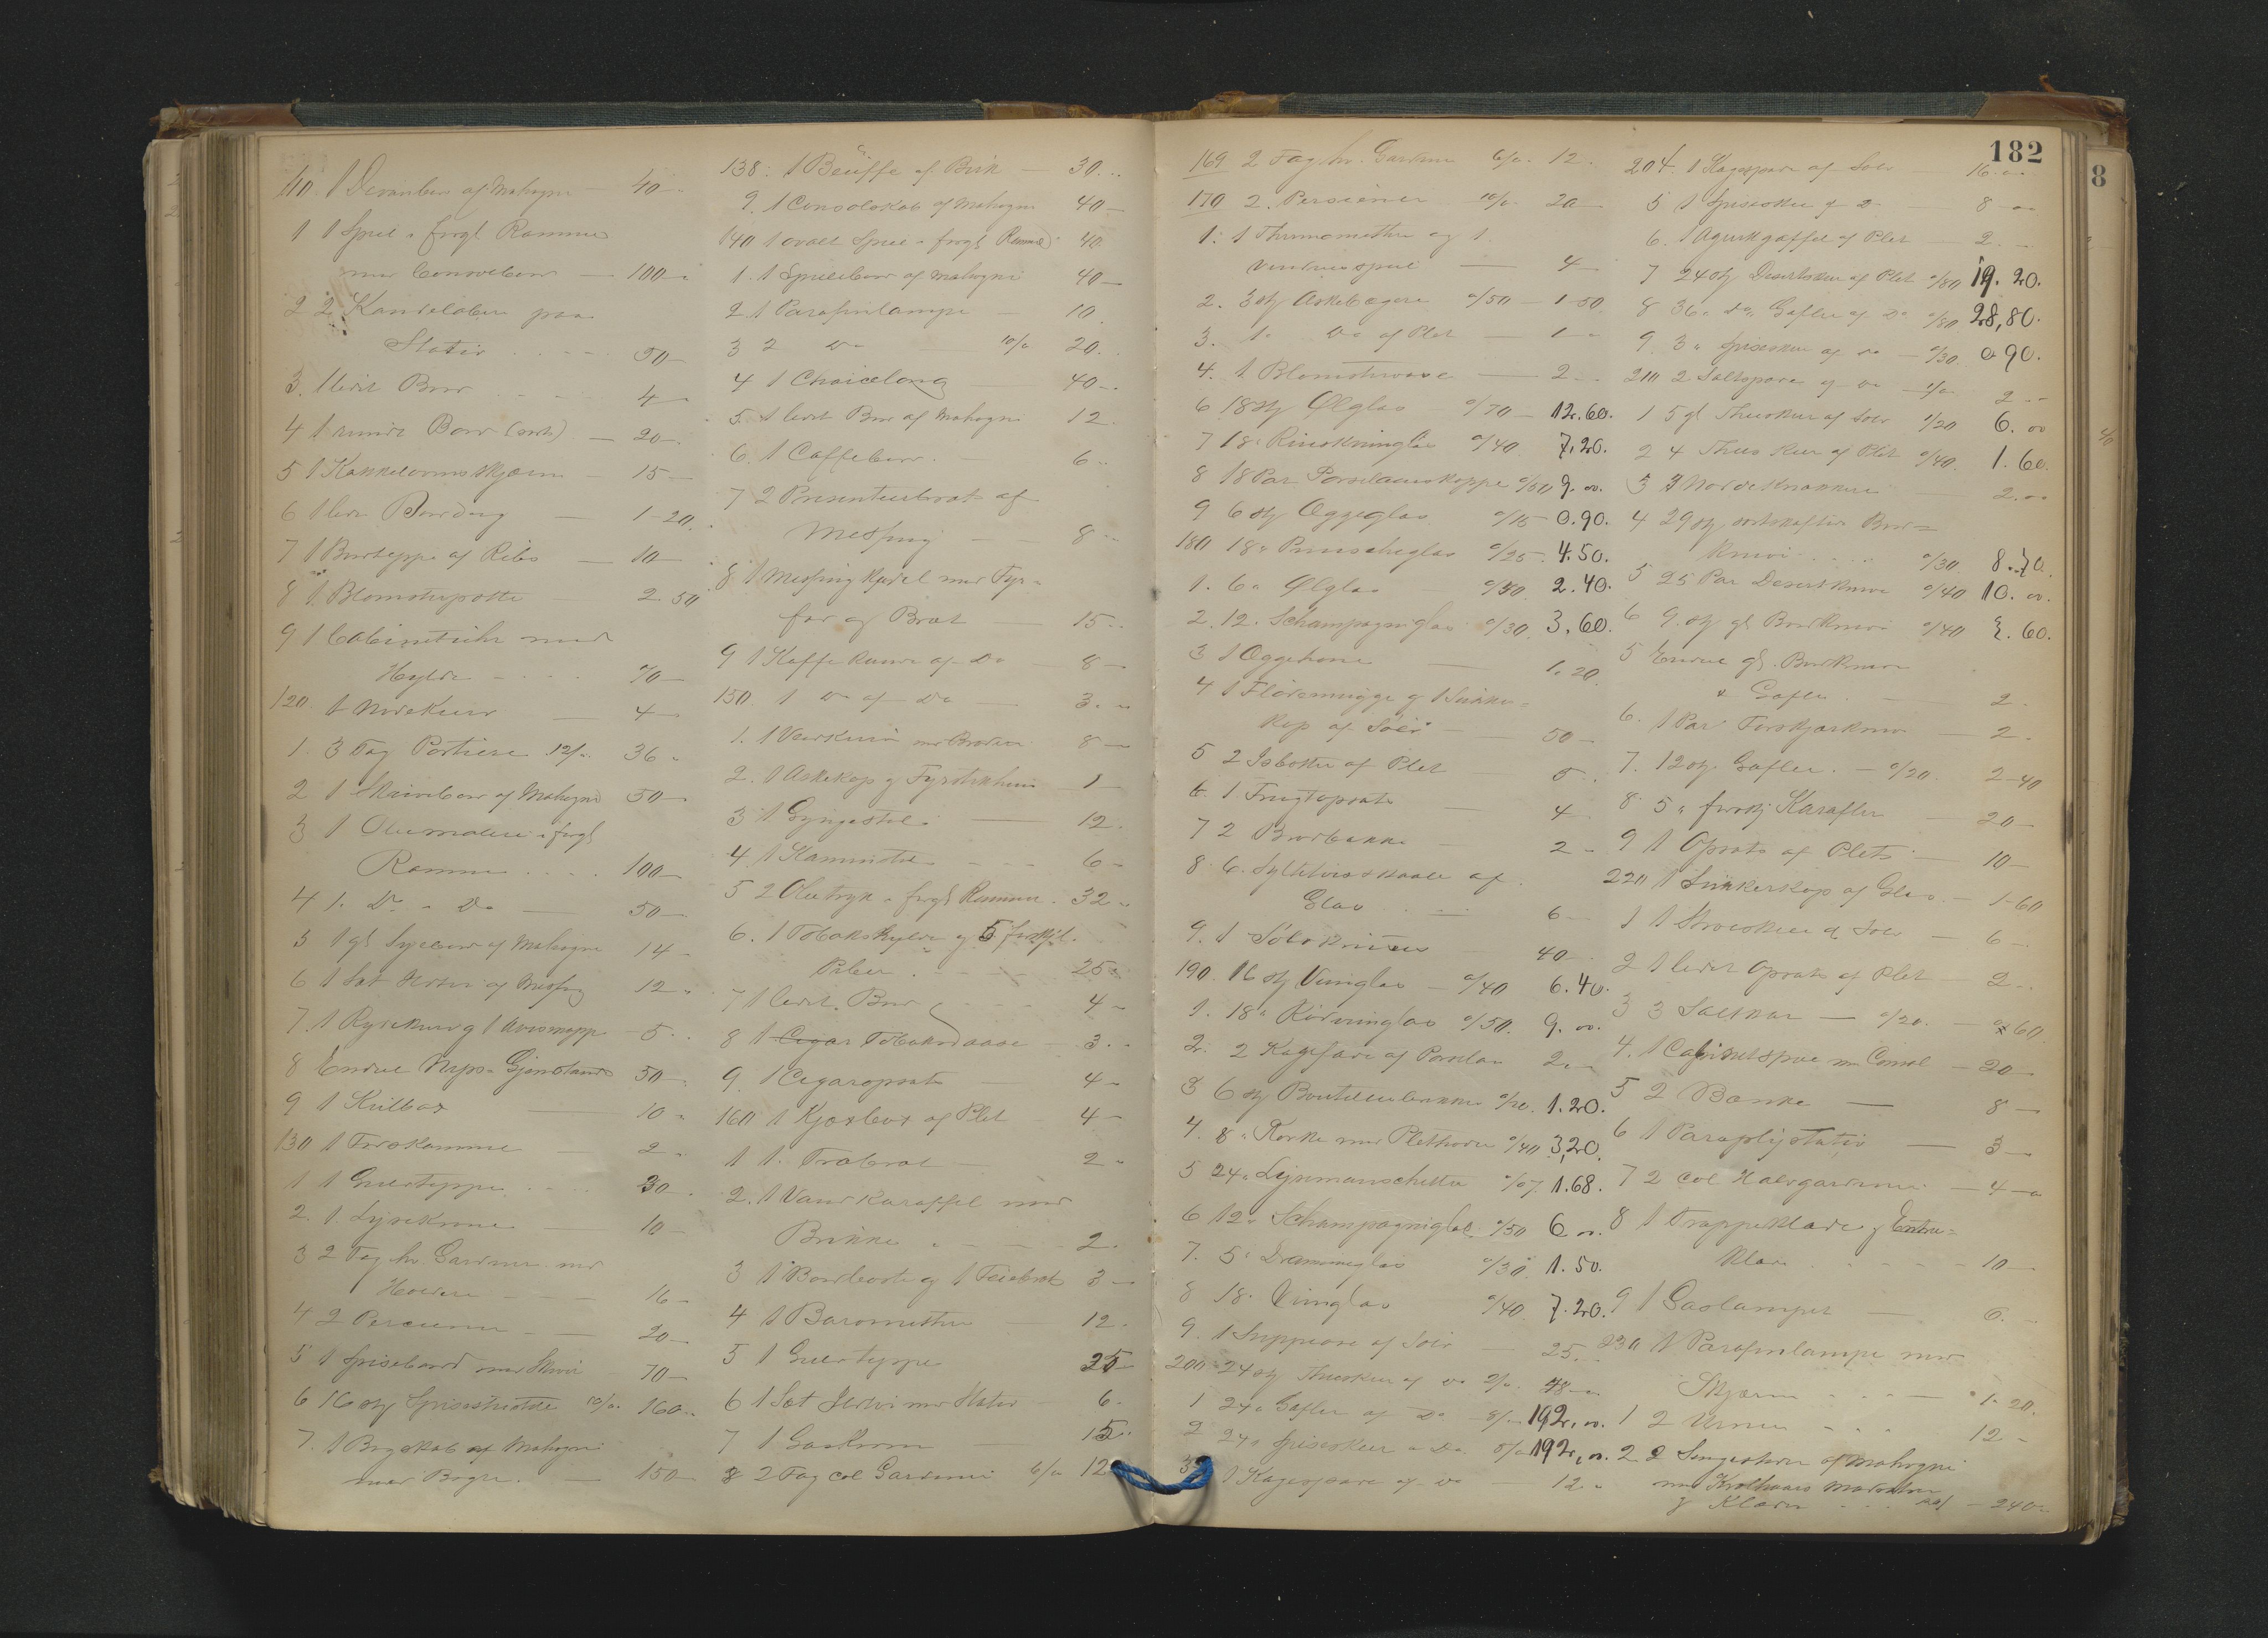 110. 1 Divanbord af Mahogni — 40 -
1 1 Speil i forgl Ramme
med Consolbord — 100 -
2 2 Kandelaber paa
Stativ . . . . 50 -
3. 1 lidet Bord . . . 4 -
4 1 rundt Bord (sort) — 20 -
5 1 Kakkelovnsskjærm — 15 -
6 1 liden — 1-20.
7 1 Bordteppe af Ribs — 10 -
8 1 Blomsterpotte — 2 50
9 1 Cabinetsuhr med
Hylde . . . . 70 -
120. 1 — 4 -
1. 3 Fag Portiere 12/- 36 -
2 1 Skrivebord af Mahogni 50 -
3 1 Oliemaleri i forgl
Ramme . . . . 100 -
4 1. Do - Do — 50 -
5 1 gl Syebord af Mahogni 14 -
6 1 Sæt af Messing 12 -
7. 1 og 1 Avismappe - 5 -
8 Endel Nips-Gjenstande 50 -
9 1 Kulbox 10 -
130 1 — 2 -
1 1 Gulvteppe . . . . 30 -
2. 1. Lysekrone — 10 -
3 2 Fag hv. Gardiner med
Holdere — 16 -
4 2 Persienner - — 20 -
5 1 Spisebord med Skuvi 70 -
6 16 stkr Spisestuestole 10/- 160 -
7. 1 Bogskab af Mahogni
med Bøger . — 150 -
138: 1 Beuffe af Birk — 30 . . .
9. 1 Consolskab af Mahogni 40 —
140 1 ovalt Speil i forgl Ramme 40.
1. 1 Speilbord af Mahogni 40 —
2 1 Parafinlampe — 10
3 2 do — 10/- 20.
4 1 Chaicelong — 40 -.
5. 1 lidet Bord af Mahogni 12.
6. 1 Caffebord. — 6 -
7 2 Presenteerbret af
Messing — — 8 -
8 1 Messing Kjedel med Fyr-
fad og Bret — 15 -
9 1 Kaffekande af Do — 8 -
150. 1 do af Do — 3. -
1. 1 med Broderi 8 —
2. 1 Askekop og Fyrstikhus 1 —
3 1 Gyngestol — 12.
4 1 Kaminstol — — 6 -
5 2 Olietryk i forgl Rammer . 32 -
6. 1 Tobakshylde og 5 forskjl.
Piber . . . . 25 -
7 1 lidet Bord . . . . 4 -
8 1 Cigar Tobaksdaase — 3 -
9. 1 Cigaropsats — 4 -
160 1 Kjæxbox af Plet — 4 -
1 1. Træbret — 2 -
2. 1 Vandkaraffel med
Brikke . — — 2.
3 1 Bordkoste og 1 Feiebret 3 —
4 1 Barometer — 12.
5 1 Gulvteppe 25
6 1 Sæt med Stativ — 6.
7 1 — 15.
8 2 Fag col Gardiner 6/- 12
182
169 2 Fag hv. Gardiner 6/- . 12 .
170 2. Persienner 10/- 20 —
1: 1 Thermometer og 1.
Vinduesspeil — 4 -
2. 3 stk Askebægere o/50 — 1 - 50.
3. 1 - Do af Plet — 1 -
4. 1 Blomstervase — 2 - .
6 18 stk Ølglas o/70 — 12.60.
7 18 " Rinskvinglas o/40 7,20.
8 18 Par Porselainskopper o/50 9. oo.
9 6 stk Æggeglas o/15 0.90.
180 18 " Punscheglas o/25 . 4.50.
1. 6 " Ølglas — o/40 2.40.
2. 12. Schampagniglas o/30 3,60.
3 1 Æggehøne — 1.20.
4 1 Flødemugge og 1 Sukker-
kop af Sølv — 50 —
5 2 af Plet 5 -
6 1 Frugtopsats — 4 -
7 2 Brødbakker — 2 -
8. 6. Syltetøisskaale af
Glas . — 6 -
9. 1 — 40
190. 16 stk Vinglas — o/40 6.40.
1. 18 " Rødvinglas o/50. 9. oo.
2. 2 Kagefade af Porselain 2. -
3 6 stk Bouteillebakker o/20. 1.20.
4. 8 " Korke med Plethoder o/40 3,20.
5 24 " Lysmanschetter o/07. 1.68.
6 12 " Schampagniglas o/50 6 oo.
7. 5 " Drammeglas o/30 1.50.
8 18 . Vinglas o/40 7.20.
9. 1 Suppeøse af Sølv 25. -
200. 24 stk Theskeer af do 2/- 48 -
1 24 " Gafler af Do 8/- 192, oo.
2 24 " Spiseskeer - Do. 8/- 192, oo.
3 1 Kagespade af do — 12 -
204. 1 Kagespade af Sølv — 16. -
5 1 Spiseske af Do — 8 - oo
6. 1 Agurkgaffel af Plet — 2. -
7 24 stk Desertskeer af Plet o/80 19. 20.
8 36 " do Gafler af Do o/80 28,80.
9. 3 " Spiseskeer af do — o/30 0 90.
210 2 Saltspader af do — 1/- 2 -
1 5 gl Theskeer af Sølv 1/20 6. oo
2 4 Theskeer af Plet o/40. 1. 60.
3 2 Nøddeknækkere — 2. oo
4 29 stk sortskaftede Bord-
knive . . . . o/30 8. 70.
5 25 Par Desertknive o/40 10. oo.
6 9 stk gl Bordknive o/40 3. 60.
5 Endel gl. Bordknive
& Gafler . — 2.
6. 1 Par Forskjærkniv — 2.
7. 12 stk Gafler . — o/20. 2 - 40
8 5 " forskj Karafler — 20 -
9 1 Opsats af Plet — 10 —
220 1 Sukkerkop af Glas — 1-60
1 1 Strøeske af Sølv — 6 - .
2 1 lidet Opsats af Plet — 2 - .
3 3 Saltkar — o/20. — o 60
4. 1 Cabinetspeil m Consol — 20 —
5 2 Bænke — 8 —
6 1 Paraplystativ — 3 —
7 2 col Halvgardiner — 4 —
8 1 Trappeklæde og Entre-
klæde . . . . 10 —
9 1 Gaslampet — 6. -
230 1 Parafinlampe med
Skjærm . . . — 1 - 20.
1 2 Urner . . . 12 -
2 2 Sengesteder af Mahogni
med Krølhaars Madratser
og Klæder . . . . — 240 -
8